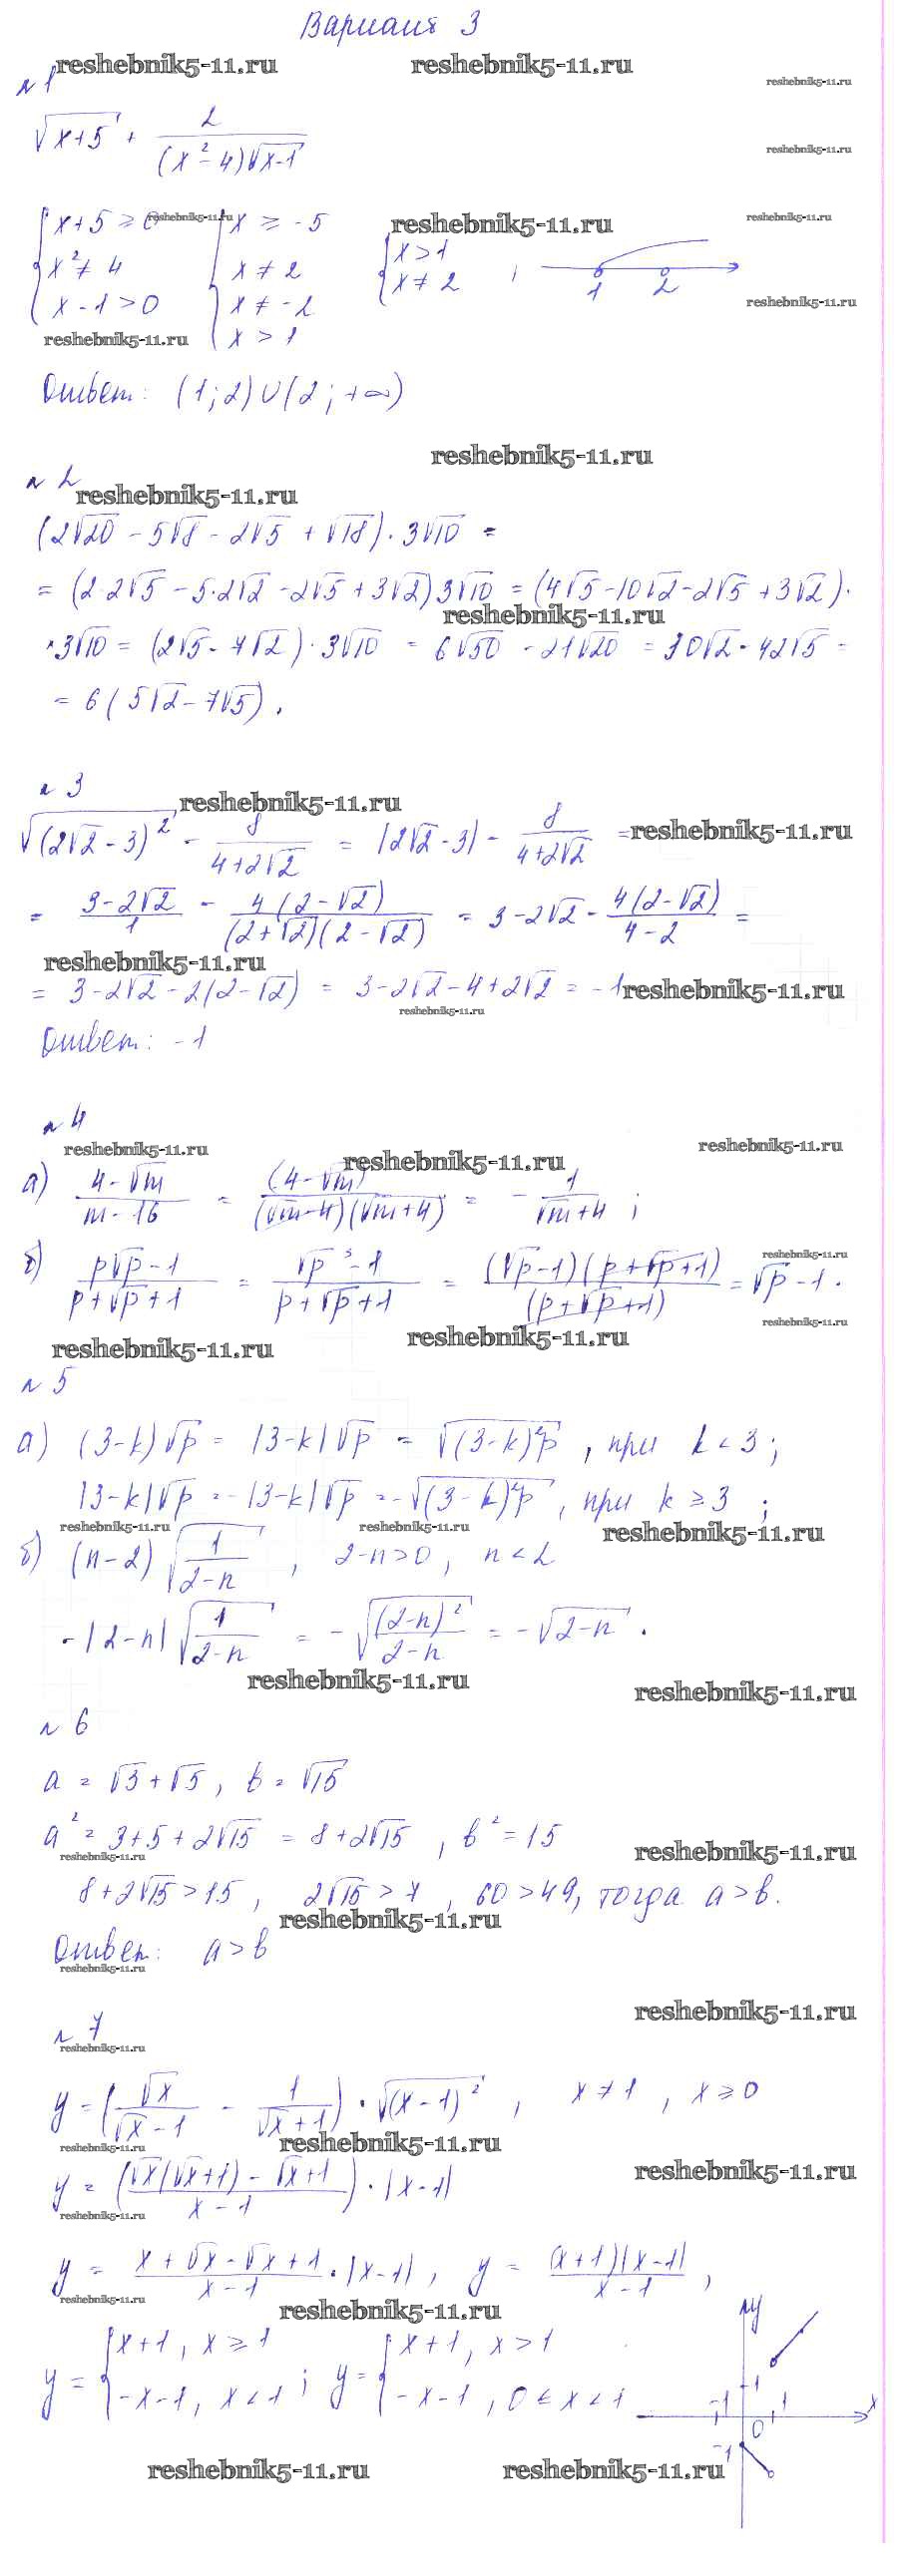 Вариант 3
reshebnik5-11.ru reshebnik5-11.ru
n 1
reshebnik5-11.ru
√(x+5) + 2/((x²-4)√(x-1))
reshebnik5-11.ru
{x+5 ≥ 0 {x ≥ -5
reshebnik5-11.ru reshebnik5-11.ru reshebnik5-11.ru
x² ≠ 4 x ≠ 2 {x > 1 ;
x - 1 > 0 x ≠ -2 x ≠ 2 1 2
x > 1
reshebnik5-11.ru reshebnik5-11.ru
Ответ: (1; 2) ∪ (2; +∞)
reshebnik5-11.ru
n 2
reshebnik5-11.ru
(2√20 - 5√8 - 2√5 + √18) · 3√10 =
= (2·2√5 - 5·2√2 - 2√5 + 3√2) 3√10 = (4√5 - 10√2 - 2√5 + 3√2) ·
reshebnik5-11.ru
· 3√10 = (2√5 - 7√2) · 3√10 = 6√50 - 21√20 = 30√2 - 42√5 =
= 6(5√2 - 7√5).
n 3
reshebnik5-11.ru
√((2√2 - 3)²) - 8/(4+2√2) = |2√2 - 3| - 8/(4+2√2) =
reshebnik5-11.ru
= (3-2√2)/1 - 4(2-√2)/((2+√2)(2-√2)) = 3-2√2 - 4(2-√2)/(4-2) =
reshebnik5-11.ru
= 3-2√2 - 2(2-√2) = 3-2√2-4+2√2 = -1
reshebnik5-11.ru
reshebnik5-11.ru
Ответ: -1
n 4
reshebnik5-11.ru reshebnik5-11.ru reshebnik5-11.ru
а) (4-√m)/(m-16) = (4-√m)/((√m-4)(√m+4)) = - 1/(√m+4) ;
б) (p√p - 1)/(p+√p+1) = (√p³ - 1)/(p+√p+1) = (√p-1)(p+√p+1)/(p+√p+1) = √p - 1.
reshebnik5-11.ru
reshebnik5-11.ru
reshebnik5-11.ru reshebnik5-11.ru
n 5
а) (3-k)√p = |3-k|√p = √((3-k)²p), при k < 3;
|3-k|√p = -|3-k|√p = -√((3-k)²p), при k ≥ 3 ;
reshebnik5-11.ru reshebnik5-11.ru reshebnik5-11.ru
б) (n-2) √(1/(2-n)) , 2-n>0, n < 2
-|2-n| √(1/(2-n)) = -√((2-n)²/(2-n)) = -√(2-n).
reshebnik5-11.ru reshebnik5-11.ru
n 6
a = √3 + √5, b = √15
a² = 3+5+2√15 = 8+2√15 , b² = 15
reshebnik5-11.ru reshebnik5-11.ru
8+2√15 > 15, 2√15 > 7, 60 > 49, тогда a > b.
reshebnik5-11.ru
Ответ: a > b
reshebnik5-11.ru
reshebnik5-11.ru
n 7
reshebnik5-11.ru
y = (√x/(√x-1) - 1/(√x+1)) · √((x-1)²) , x ≠ 1 , x ≥ 0
reshebnik5-11.ru reshebnik5-11.ru
y = ((√x(√x+1) - √x+1)/(x-1)) · |x-1|
reshebnik5-11.ru
reshebnik5-11.ru
y = (x+√x-√x+1)/(x-1) · |x-1|, y = (x+1)|x-1|/(x-1) ,
reshebnik5-11.ru reshebnik5-11.ru
y = {x+1, x ≥ 1 ; y = {x+1, x > 1
-x-1, x < 1 -x-1, 0 ≤ x < 1
y
1
-1 0 1 x
-1
reshebnik5-11.ru reshebnik5-11.ru